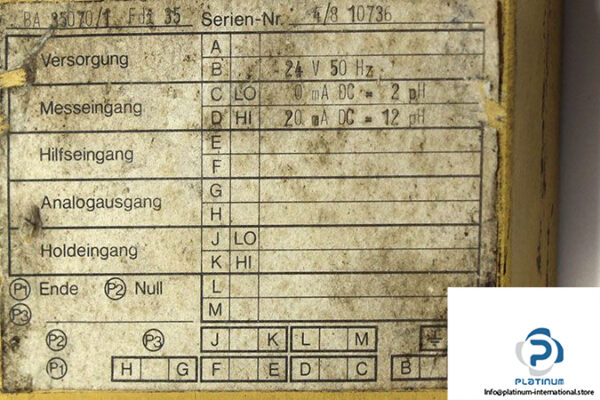 BA 35070/1 FJ: 35 Serien-Nr. 4/8 10736
Versorgung A
B 24 V 50 Hz
Messeingang C LO 0 mA DC = 2 pH
D HI 20 mA DC = 12 pH
Hilfseingang E
F
Analogausgang G
H
Holdeingang J LO
K HI
P1 Ende P2 Null L
P3 M
P2 P3 J K L M
P1 H G F E D C B
PLATINUM
Info@platinum-international.store